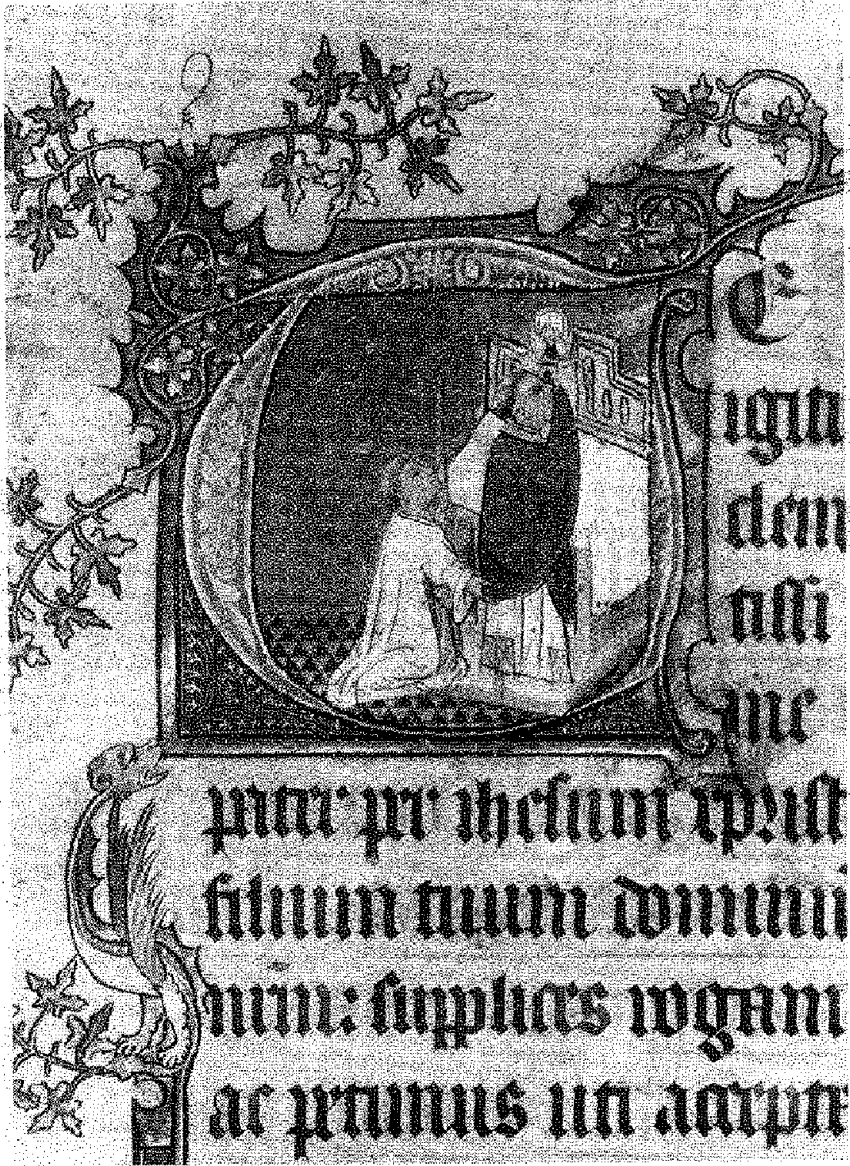 TE
igitu
clem
tissi
me
pater per ihesum xprist
filium tuum dominu
nrm: supplices rogam
ac petimus uti accept